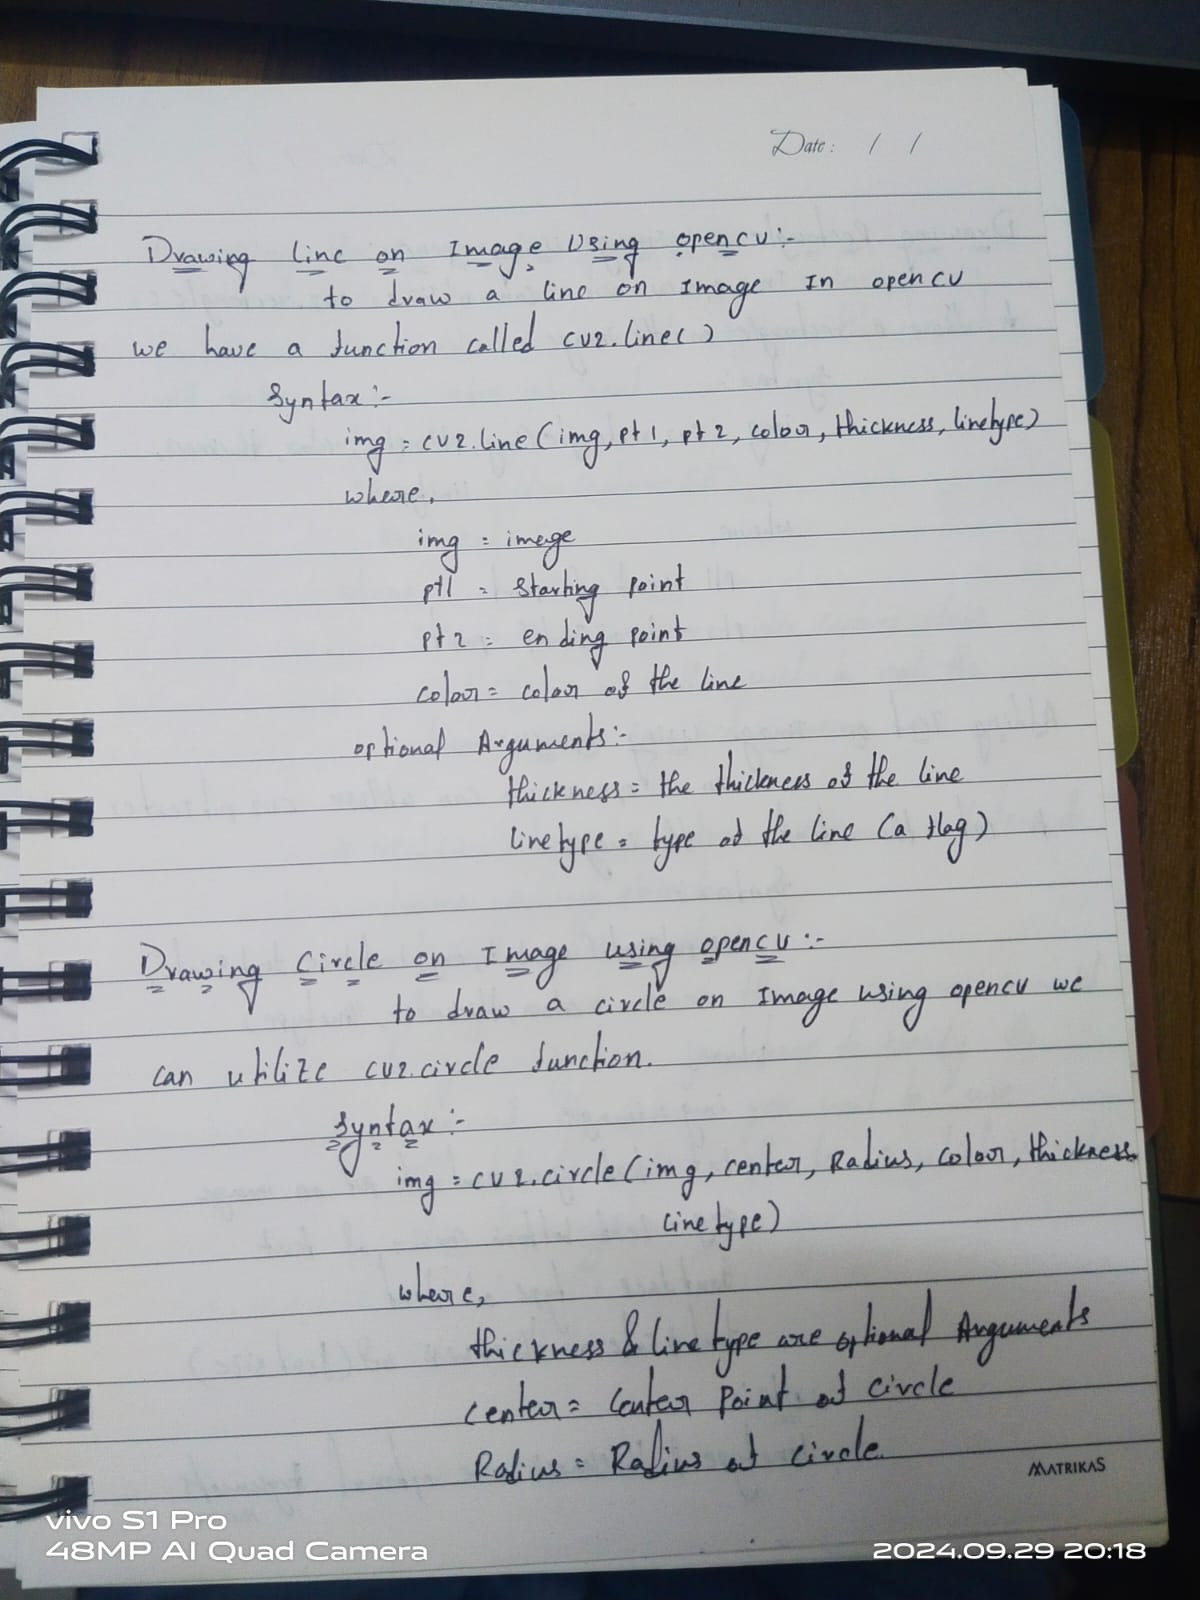 Date: / /
Drawing line on Image Using opencv:-
to draw a line on Image In opencv
we have a function called cv2.line()
Syntax:-
img = cv2.line(img, pt1, pt2, colour, thickness, linetype)
where,
img = image
pt1 = Starting point
pt2 = ending point
colour = colour of the line
optional Arguments:-
thickness = the thickness of the line
linetype = type of the line (a flag)
Drawing Circle on Image using opencv:-
to draw a circle on Image using opencv we
can utilize cv2.circle function.
Syntax:-
img = cv2.circle(img, center, Radius, colour, thickness
linetype)
where,
thickness & linetype are optional Arguments
center = Center Point of circle
Radius = Radius of circle.
MATRIKAS
vivo S1 Pro
48MP AI Quad Camera
2024.09.29 20:18